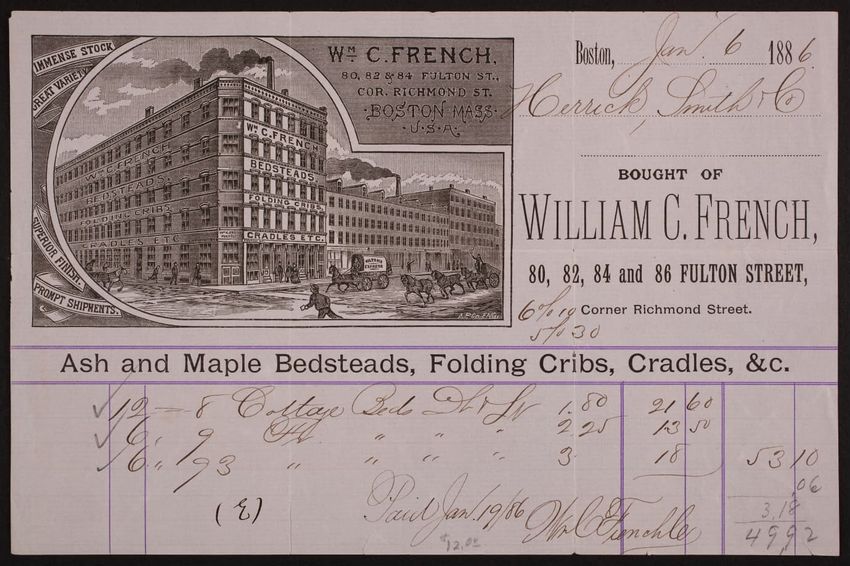 IMMENSE STOCK
GREAT VARIETY
SUPERIOR FINISH.
PROMPT SHIPMENTS.
WM. C. FRENCH,
80, 82 & 84 FULTON ST.,
COR. RICHMOND ST.
BOSTON MASS.
U.S.A.
WM. C. FRENCH
BEDSTEADS,
FOLDING CRIBS,
CRADLES ETC.
WM. C. FRENCH
BEDSTEADS,
FOLDING CRIBS,
CRADLES ETC.
EXPRESS
Boston, Jan. 6 1886.
Herrick, Smith & Co
BOUGHT OF
WILLIAM C. FRENCH,
80, 82, 84 and 86 FULTON STREET,
Corner Richmond Street.
6% 10
5% 30
Ash and Maple Bedsteads, Folding Cribs, Cradles, &c.
12 — 8 Cottage Beds 1.80 21 60
6 " 9 " " " 2.25 13 50
6 " 93 " " " " 3. 18 53 10
.06
3.18
49.92
Paid Jan. 19/86 Wm C French
$12.00